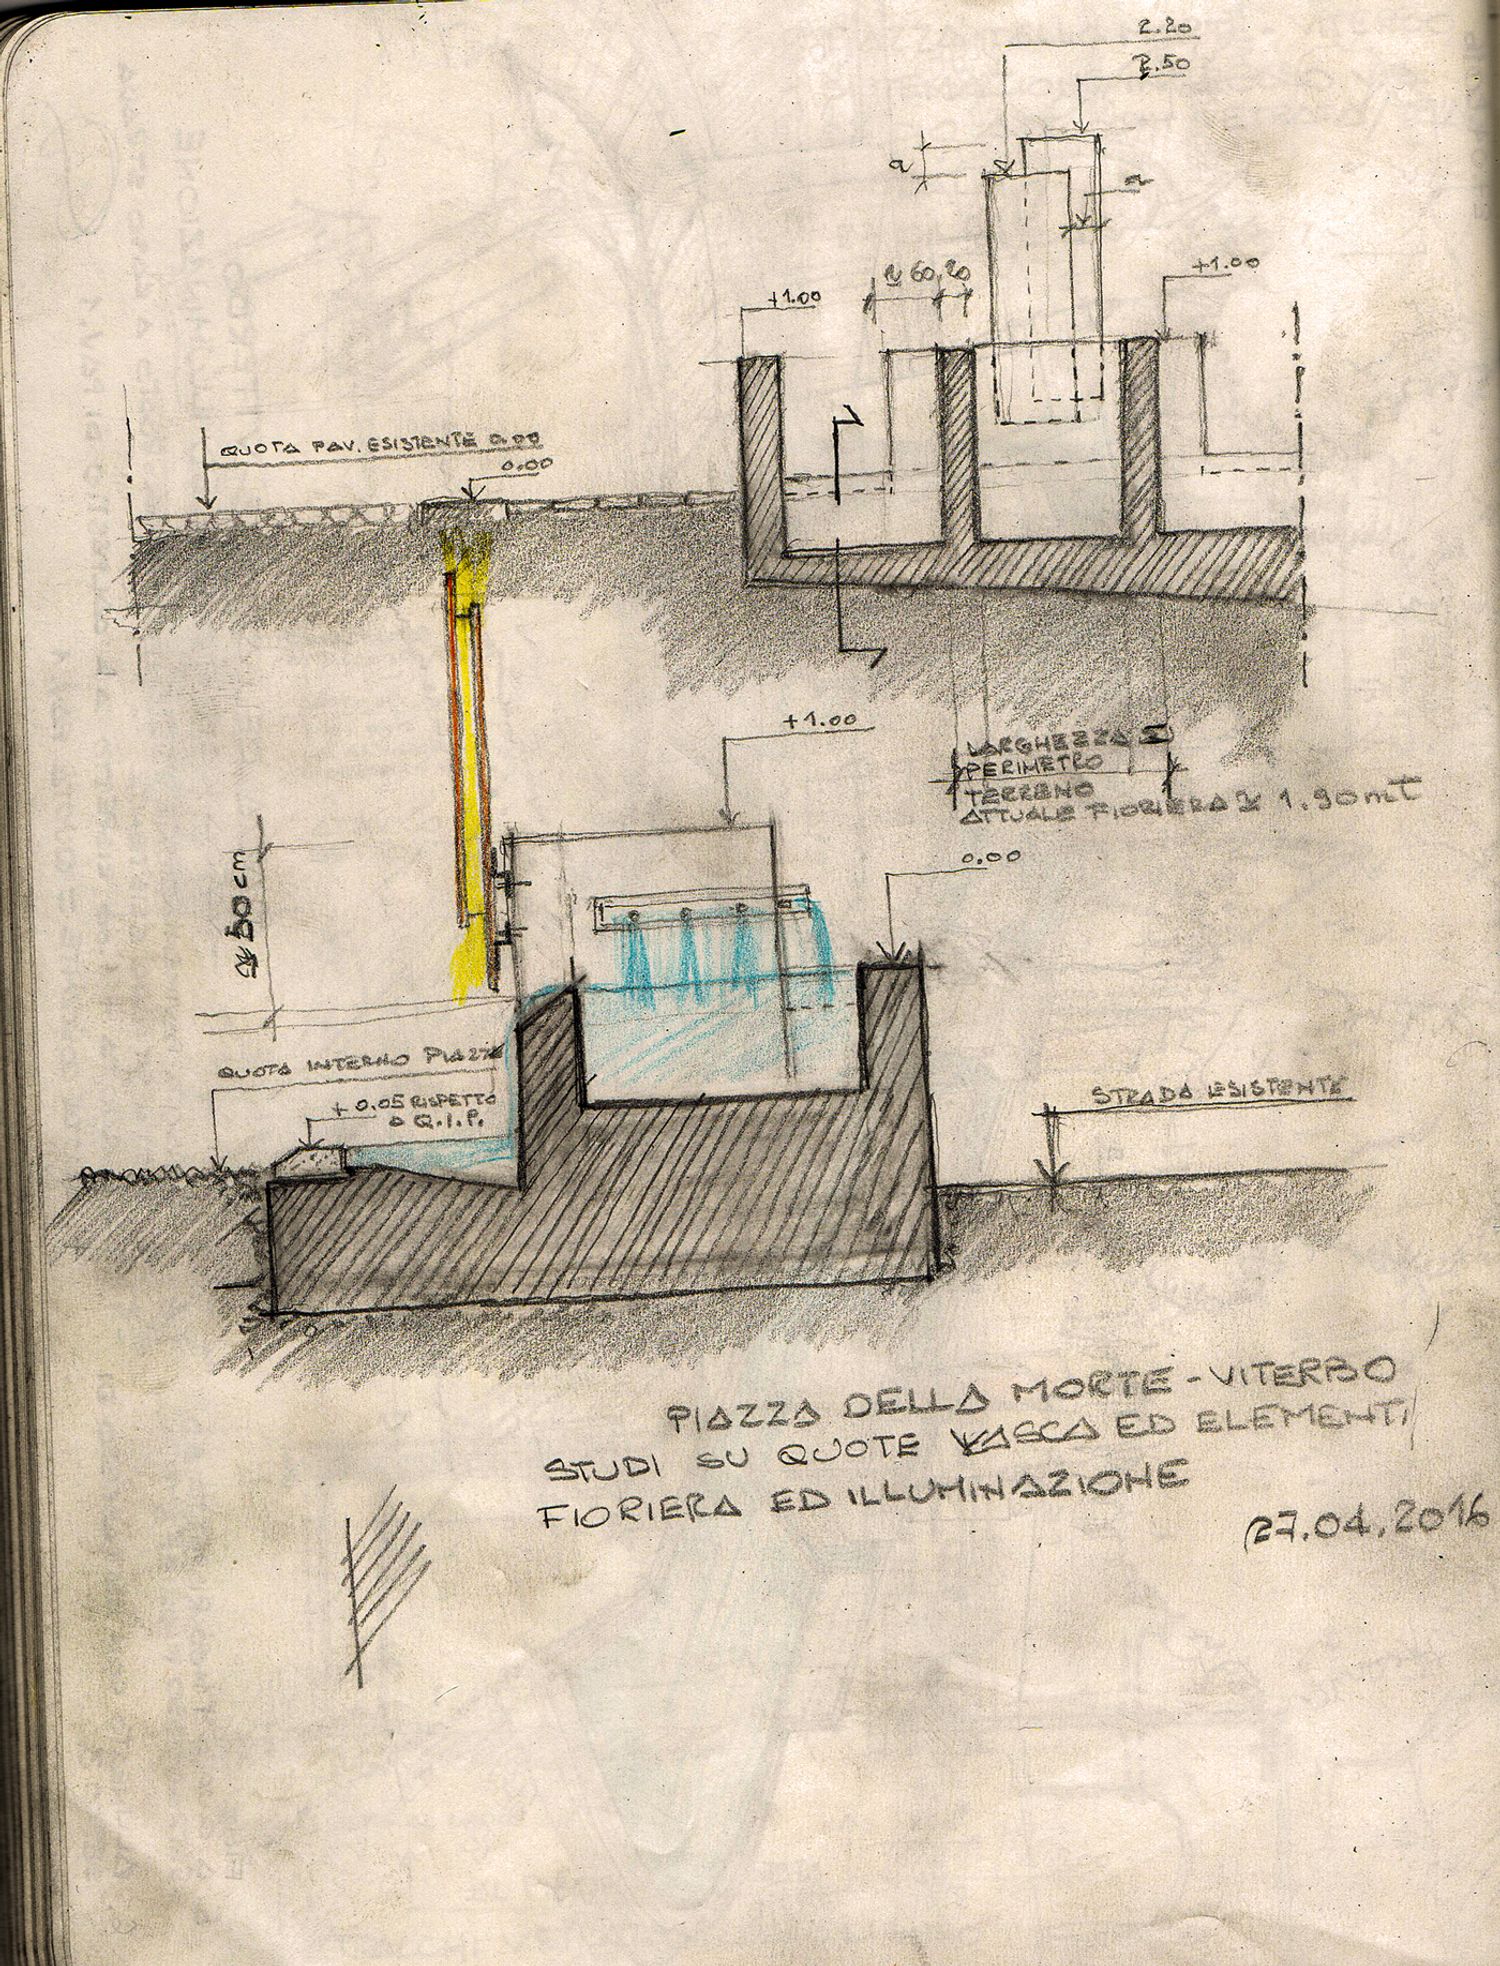 2.20
2.50
a
a
+1.00
60, 20
+1.00
QUOTA PAV. ESISTENTE 0.00
0.00
+1.00
LARGHEZZA
PERIMETRO
TERRENO
ATTUALE FIORIERA ≅ 1.90 mt
0.00
cm
QUOTA INTERNO PIAZZA
+0.05 RISPETTO
A Q.I.P.
STRADA ESISTENTE
PIAZZA DELLA MORTE - VITERBO
STUDI SU QUOTE VASCA ED ELEMENTI
FIORIERA ED ILLUMINAZIONE
27.04.2016